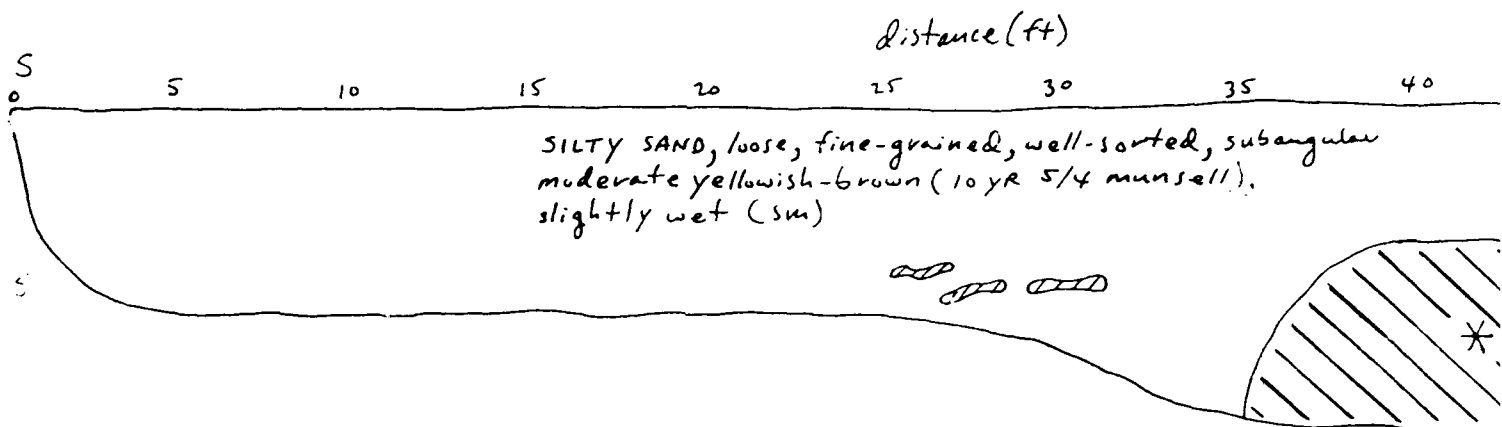 distance (ft)
S
0 5 10 15 20 25 30 35 40
SILTY SAND, loose, fine-grained, well-sorted, subangular
moderate yellowish-brown (10 YR 5/4 munsell).
slightly wet (SM)
5
*